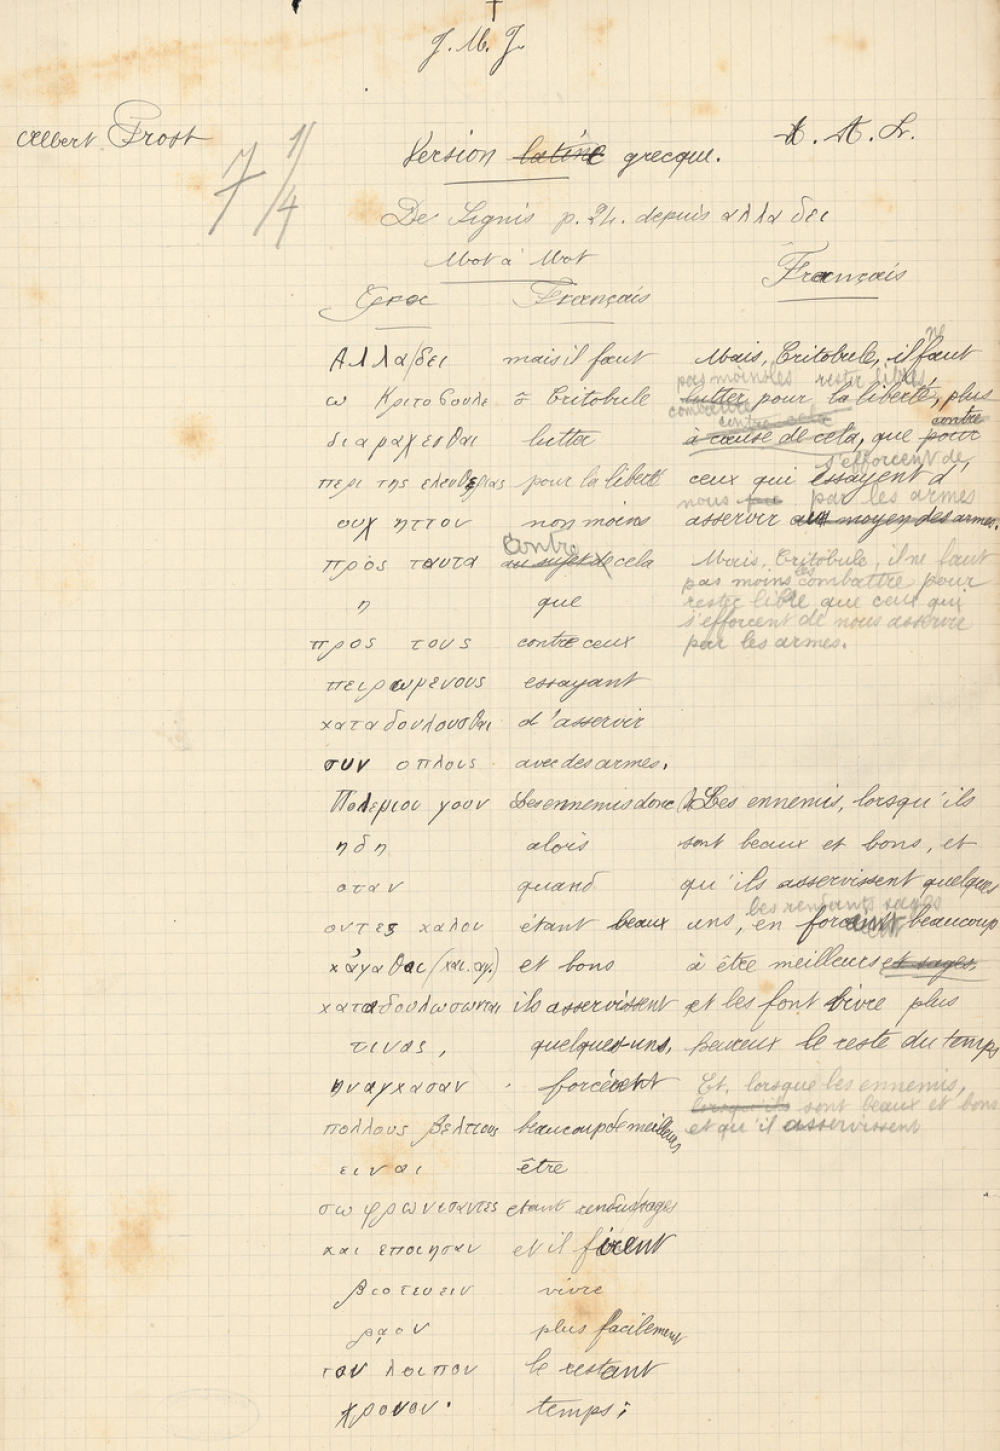 J. M. J.
Albert Prost
A. A. L.
7 1/4
Version latine grecque.
De Signis p. 24. depuis αλλα δει
Mot à Mot
Français
Grec Français
Αλλα/δει mais il faut Mais, Critobule, il faut
ne
pas moins les rester libres
ω Κριτοβουλε ô Critobule lutter pour la liberté, plus
combattre contre cela contre
διαμαχεσθαι lutter à cause de cela, que pour
s'efforcent de
περι της ελευθεριας pour la liberté ceux qui essayent d'
nous par les armes
ουχ ηττον non moins asservir au moyen des armes.
contre
πρὸς ταυτα au sujet de cela Mais, Critobule, il ne faut
pas moins les combattre pour
η que rester libre que ceux qui
s'efforcent de nous asservir
προς τους contre ceux par les armes.
πειρωμενους essayant
καταδουλουσθαι d'asservir
συν οπλοις avec des armes.
Πολεμιοι γουν Les ennemis donc Les ennemis, lorsqu'ils
ηδη alors sont beaux et bons, et
οταν quand qu'ils asservissent quelques
les rendant sages
οντες καλοι étant beaux uns, en forçant beaucoup
κἀγαθοι (και αγ.) et bons à être meilleurs et sages,
καταδουλωσωνται ils asservissent et les font vivre plus
τινας, quelques-uns, heureux le reste du temps
ηναγκασαν forcèrent Et, lorsque les ennemis,
lorsqu'ils sont beaux et bons
πολλους βελτιους beaucoup de meilleurs et qu'il asservissent
ειναι être
σωφρωνισαντες etant rendus sages
και εποιησαν et il firent
βιοτευειν vivre
ρᾳον plus facilement
τον λοιπον le restant
χρονον. temps;